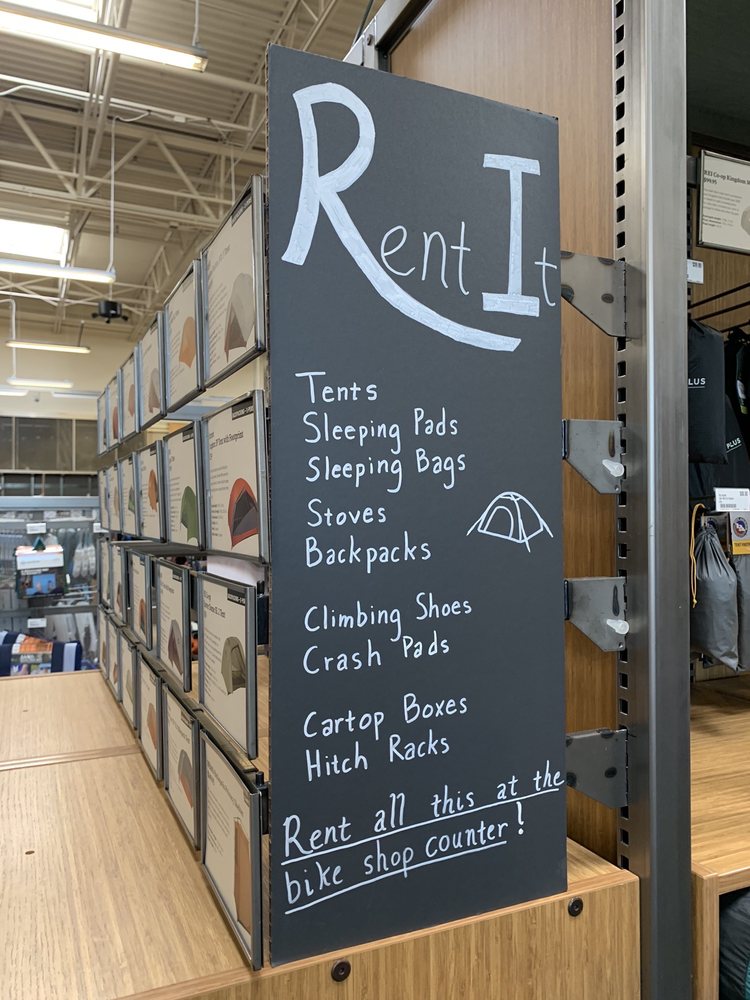 Rent It
Tents
Sleeping Pads
Sleeping Bags
Stoves
Backpacks
Climbing Shoes
Crash Pads
Cartop Boxes
Hitch Racks
Rent all this at the
bike shop counter!
REI Co-op Kingdom
$99.95
PLUS
PLUS